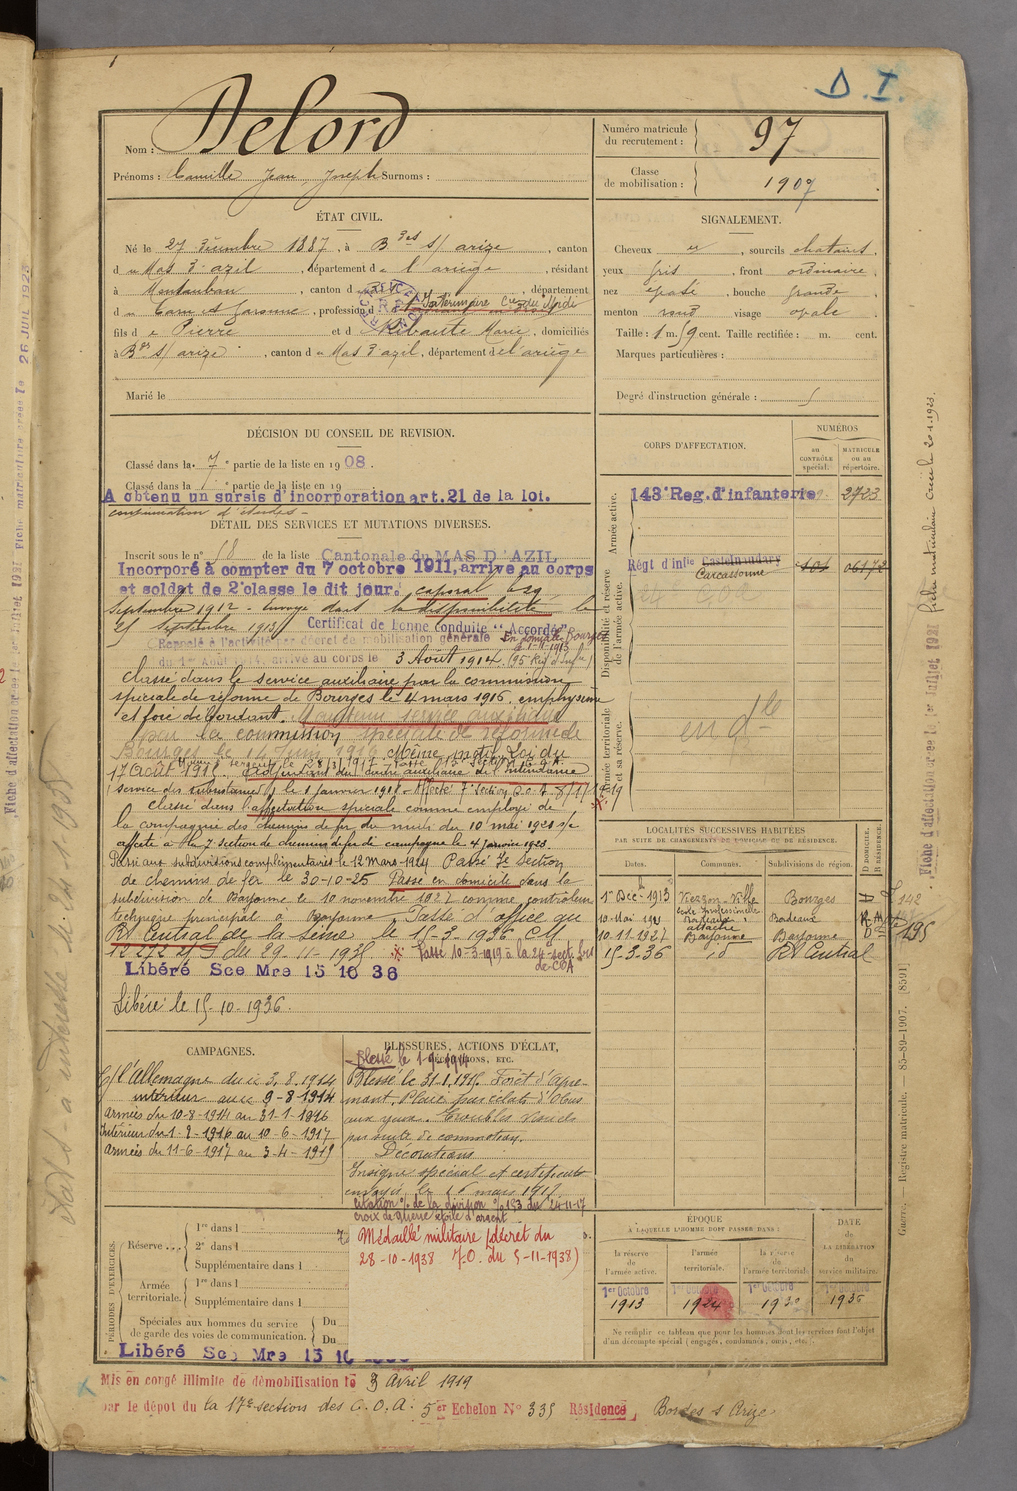 D. I.
Nom : Delord
Prénoms : Camille Jean Joseph Surnoms :
Numéro matricule du recrutement : 97
Classe de mobilisation : 1907
ÉTAT CIVIL.
Né le 27 Décembre 1887, à Bdes s/ arize, canton
du Mas d'azil, département de l'ariège, résidant
à Montauban, canton d , département
du Tarn et Garonne, profession d Intérimaire Cie du Midi
fils de Pierre et de Ribaute Marie, domiciliés
à Bdes s/ arize, canton du Mas d'azil, département de l'ariège
Marié le
SIGNALEMENT.
Cheveux et, sourcils chatains,
yeux gris, front ordinaire,
nez épaté, bouche grande,
menton rond visage ovale
Taille : 1 m. 59 cent. Taille rectifiée : m. cent.
Marques particulières :
Degré d'instruction générale :
DÉCISION DU CONSEIL DE REVISION.
Classé dans la 7e partie de la liste en 1908.
Classé dans la e partie de la liste en 19
A obtenu un sursis d'incorporation art. 21 de la loi.
continuation d'études -
DÉTAIL DES SERVICES ET MUTATIONS DIVERSES.
Inscrit sous le n° 58 de la liste Cantonale du MAS D'AZIL
Incorporé à compter du 7 octobre 1911, arrivé au corps
et soldat de 2e classe le dit jour. caporal le
Septembre 1912 - Envoyé dans la disponibilité le
25 Septembre 1913. Certificat de bonne conduite "Accordé"
Rappelé à l'activité par décret de mobilisation générale
du 1er Août 1914, arrivé au corps le 3 Août 1914. (95 Rég d'infie)
En domicile Bourges
1-11-1913
Classé dans le service auxiliaire par la commission
spéciale de réforme de Bourges le 4 mars 1916, emphysème
et foie débordant. Maintenu service auxiliaire
par la commission spéciale de réforme de
Bourges le 14 Juin 1916 Même motif Loi du
17 Août 1915. adjudant du cadre auxiliaire de l'Intendance
(service des subsistances) le 1 janvier 1918 - Affecté 7e Section C.o.A 8/1/1919
Classé dans l'affectation spéciale comme employé de
la compagnie des chemins de fer du midi du 10 mai 1921
affecté à la 7 section de chemins de fer de campagne le 4 Janvier 1923.
Passé aux subdivisions complémentaires le 12 Mars 1924 Passé 7e section
de chemins de fer le 30-10-25 Passé en domicile dans la
subdivision de Bayonne le 10 novembre 1927 comme contrôleur
technique principal à Bayonne. Passé d'office au
Rt Central de la Seine le 15-3-1936 CM
12272 du 29-11-1935 Passé 10-3-1919 à la 24e sect
de COA
Libéré Sce Mre 15 10 36
Libéré le 15-10-1936.
CORPS D'AFFECTATION.
NUMÉROS
AU CONTRÔLE spécial.
MATRICULE OU AU répertoire.
Armée active.
143e Reg. d'infanterie 2723
Disponibilité et réserve de l'armée active.
Régt d'infie Castelnaudary 06172
Carcassonne
Armée territoriale et sa réserve.
LOCALITÉS SUCCESSIVES HABITÉES
PAR SUITE DE CHANGEMENTS DE DOMICILE OU DE RÉSIDENCE.
Dates. Communes. Subdivisions de région. D DOMICILE. R RÉSIDENCE.
1er Dec - 1913 Vierzon-Ville Bourges
école Professionnelle
10 Mai 1921 Bordeaux Bordeaux
10-11-1927 Bayonne Bayonne D
15-3-36 id Rt Central
195
CAMPAGNES.
C/ l'Allemagne du 3.8.1914
intérieur au 9-8-1914
Armées du 10-8-1914 au 31-1-1916
Intérieur du 1-2-1916 au 10-6-1917
Armées du 11-6-1917 au 3-4-1919
BLESSURES, ACTIONS D'ÉCLAT, DÉCORATIONS, ETC.
Blessé le 1-9-1914
Blessé le 31.1.1915. Forêt d'Apremont, Plaie par éclats d'obus
aux yeux. Troubles visuels
par suite de commotion.
Décorations
Insigne spécial et certificats
envoyés le 16 mars 1917
Citation % de la division n° 153 du 24-11-17
croix de guerre étoile d'argent.
Médaille militaire (décret du
28-10-1938 J.O. du 5-11-1938)
PÉRIODES D'EXERCICES.
Réserve ... 1re dans l
2e dans l
Supplémentaire dans l
Armée territoriale. 1re dans l
Supplémentaire dans l
Spéciales aux hommes du service de garde des voies de communication. Du
Du
Libéré Sce Mre 15 10
ÉPOQUE
À LAQUELLE L'HOMME DOIT PASSER DANS :
la réserve de l'armée active. l'armée territoriale. la réserve de l'armée territoriale.
DATE DE LA LIBÉRATION du service militaire.
1er Octobre 1913
1er Octobre 1924
1er Octobre 1930
1936
Ne remplir ce tableau que pour les hommes dont les services font l'objet d'un décompte spécial (engagés, condamnés, omis, etc.)
Mis en congé illimité de démobilisation le 3 Avril 1919
par le dépot du la 17e section des C.O.A. 5er Echelon N° 335 Résidence Bordes s Arize
Guerre. — Registre matricule. — 85-89-1907. [8591]
Fiche d'affectation créée le 1er Juillet 1921 fiche matriculaire créée le 20.1.1923.
Fiche d'affectation créée le 1er Juillet 1921 Fiche matriculaire créée le 26 JUIL 1923